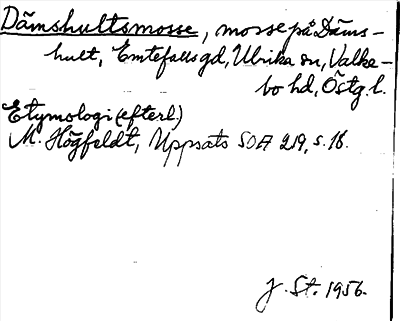 Dämshultsmosse, mosse på Däms-
hult, Emtefallsgd, Ulrika sn, Valke-
bo hd, Östg. l.
Etymologi (efterl.)
M. Högfeldt, Uppsats SOA 219, s. 18.
J. St. 1956.